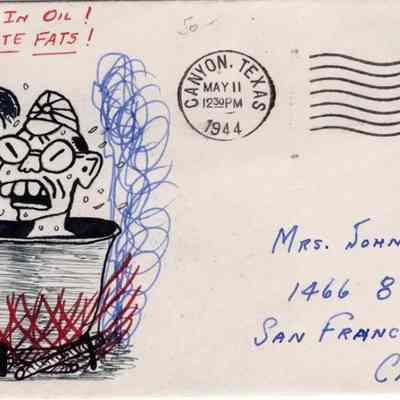 IN OIL!
TE FATS!
50
CANYON, TEXAS
MAY 11
12:30 PM
1944
MRS. JOHN
1466 8
SAN FRANC
CA